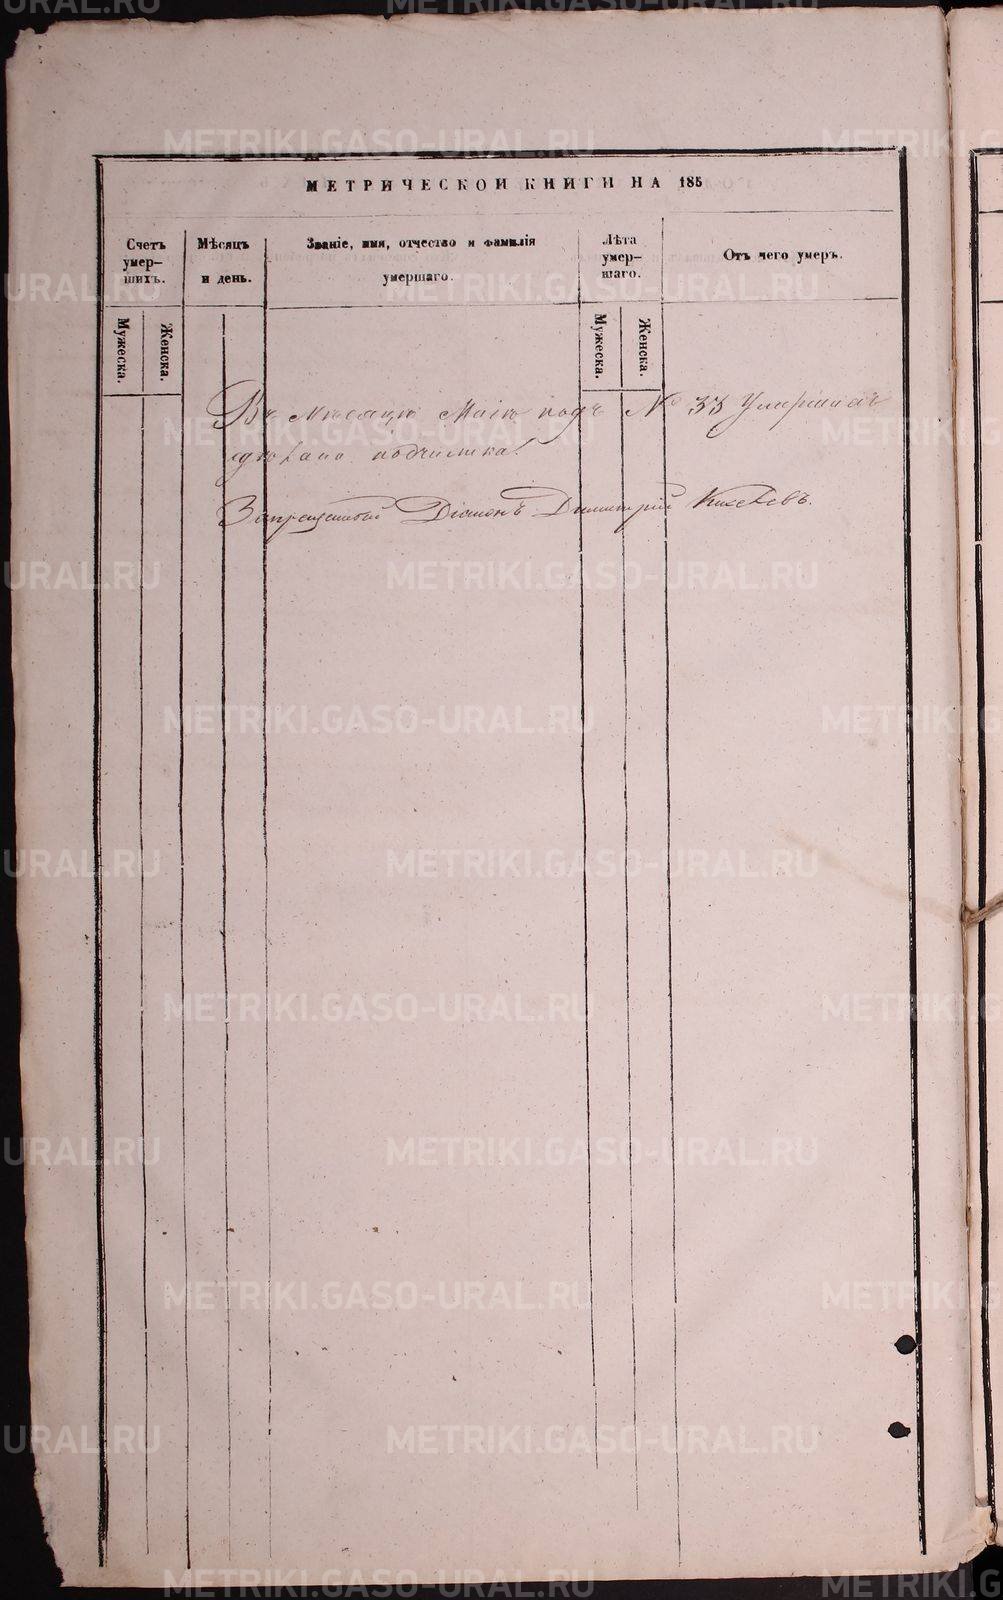 МЕТРИЧЕСКОЙ КНИГИ НА 185
Счетъ умер-шихъ.
Мѣсяцъ и день.
Званіе, имя, отчество и фамилія умершаго.
Лѣта умер-шаго.
Отъ чего умеръ.
Мужеска.
Женска.
Мужеска.
Женска.
Въ мѣсяцѣ Маіѣ подъ № 33 Умершихъ
сдѣлана подчистка.
Запрещенный Діаконъ Димитрій Киселевъ.
METRIKI.GASO-URAL.RU